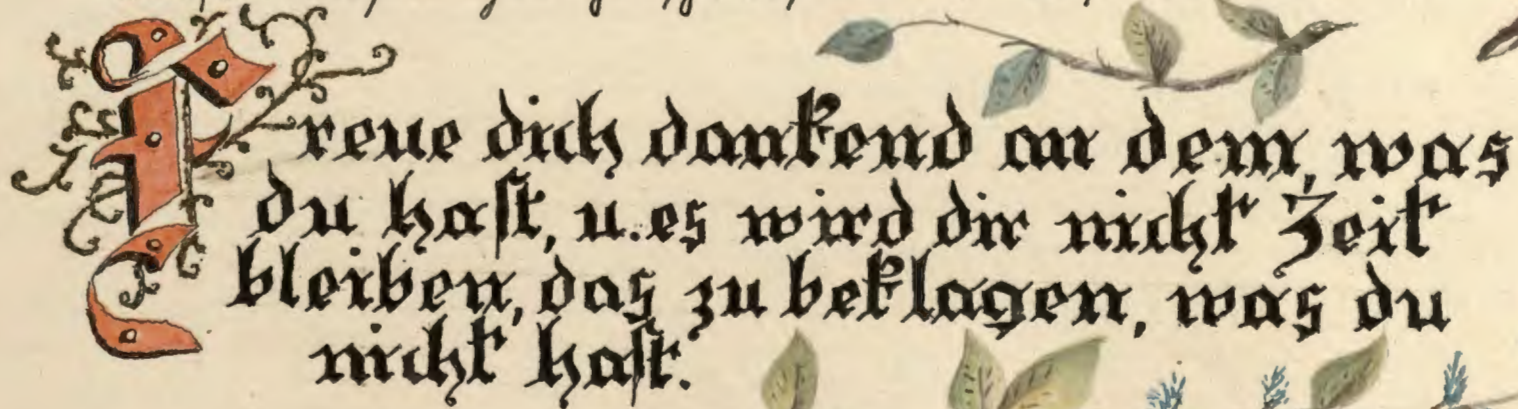 Freue dich dankend an dem, was
du hast, u. es wird dir nicht Zeit
bleiben, das zu beklagen, was du
nicht hast.